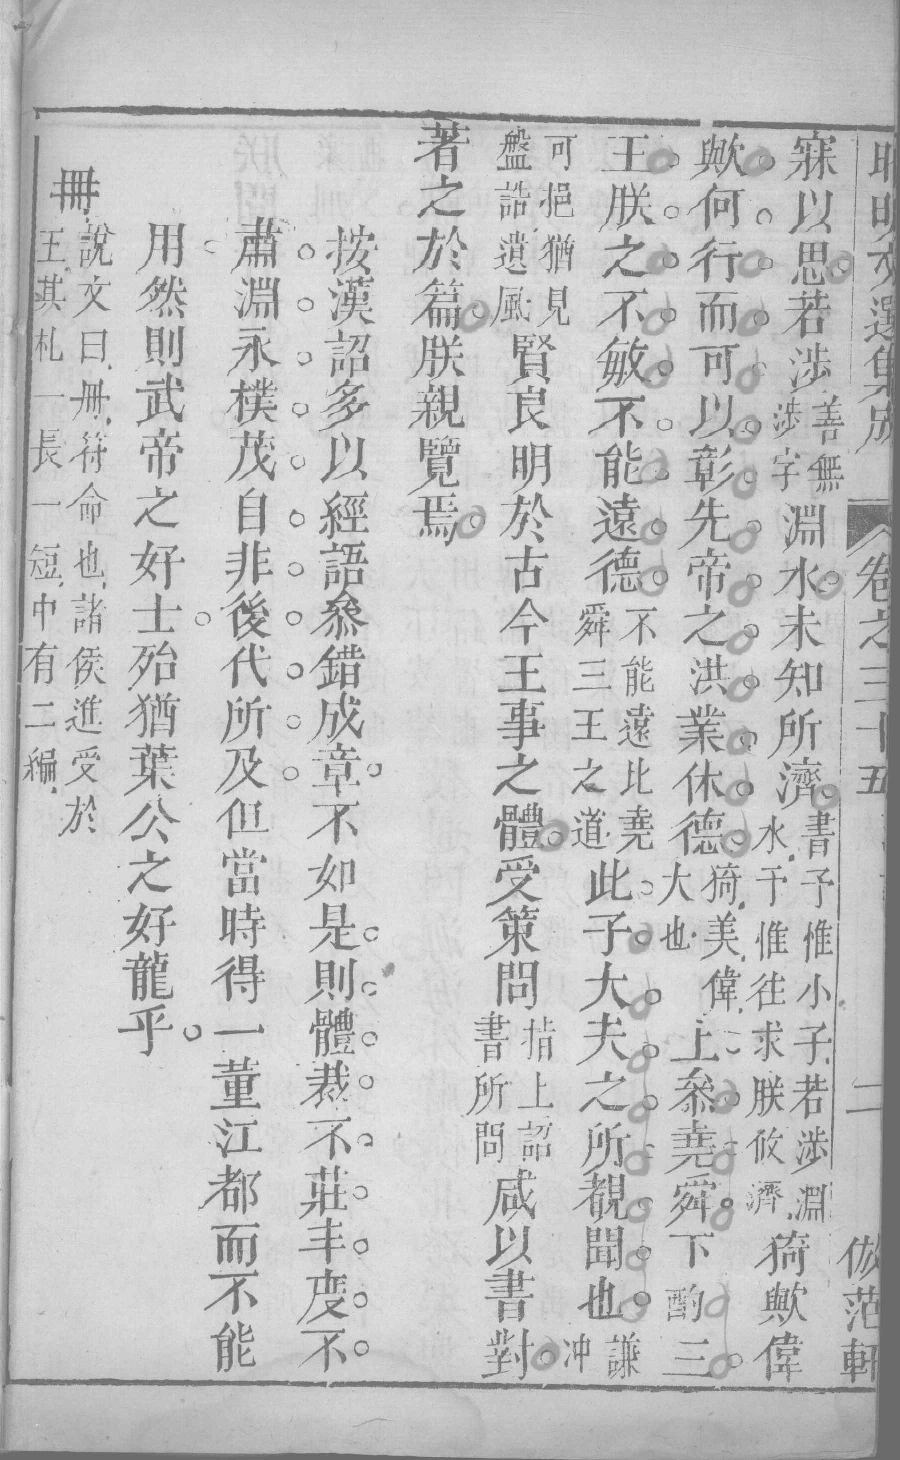 昭明文選集成 卷之三十五 二 倣范軒
寐以思若涉善無涉字淵水未知所濟書予惟小子若涉淵水予惟往求朕攸濟猗歟偉
歟何行而可以彰先帝之洪業休德猗美偉大也上叅堯舜下酌三
王朕之不敏不能遠德不能遠比堯舜三王之道此子大夫之所覩聞也謙冲
可挹猶見盤誥遺風賢良明於古今王事之體受策問指上詔書所問咸以書對
著之於篇朕親覽焉
按漢詔多以經語叅錯成章不如是則體裁不莊丰度不
肅淵永樸茂自非後代所及但當時得一董江都而不能
用然則武帝之好士殆猶葉公之好龍乎
冊說文曰冊符命也諸侯進受於王其札一長一短中有二編